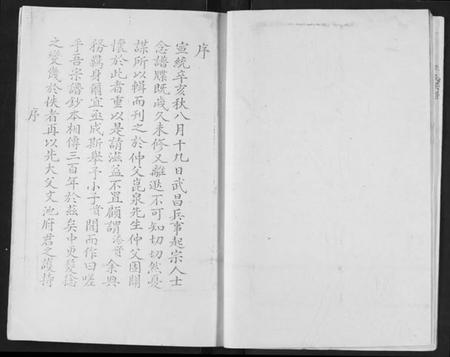 序
宣統辛亥秋八月十九日武昌兵事起宗人士
念譜牒既歲久未修又離遯不可知切切然憂
謀所以輯而刊之於仲父崑泉先生仲父固關
懷於此者重以是請滋益不置顧謂 余與
務羈身爾宜丞成斯舉予小子 聞而作曰嗟
乎吾宗譜鈔本相傳三百年於茲矣中更髮捻
之變幾於佚者再以先大父文池府君之護持
序